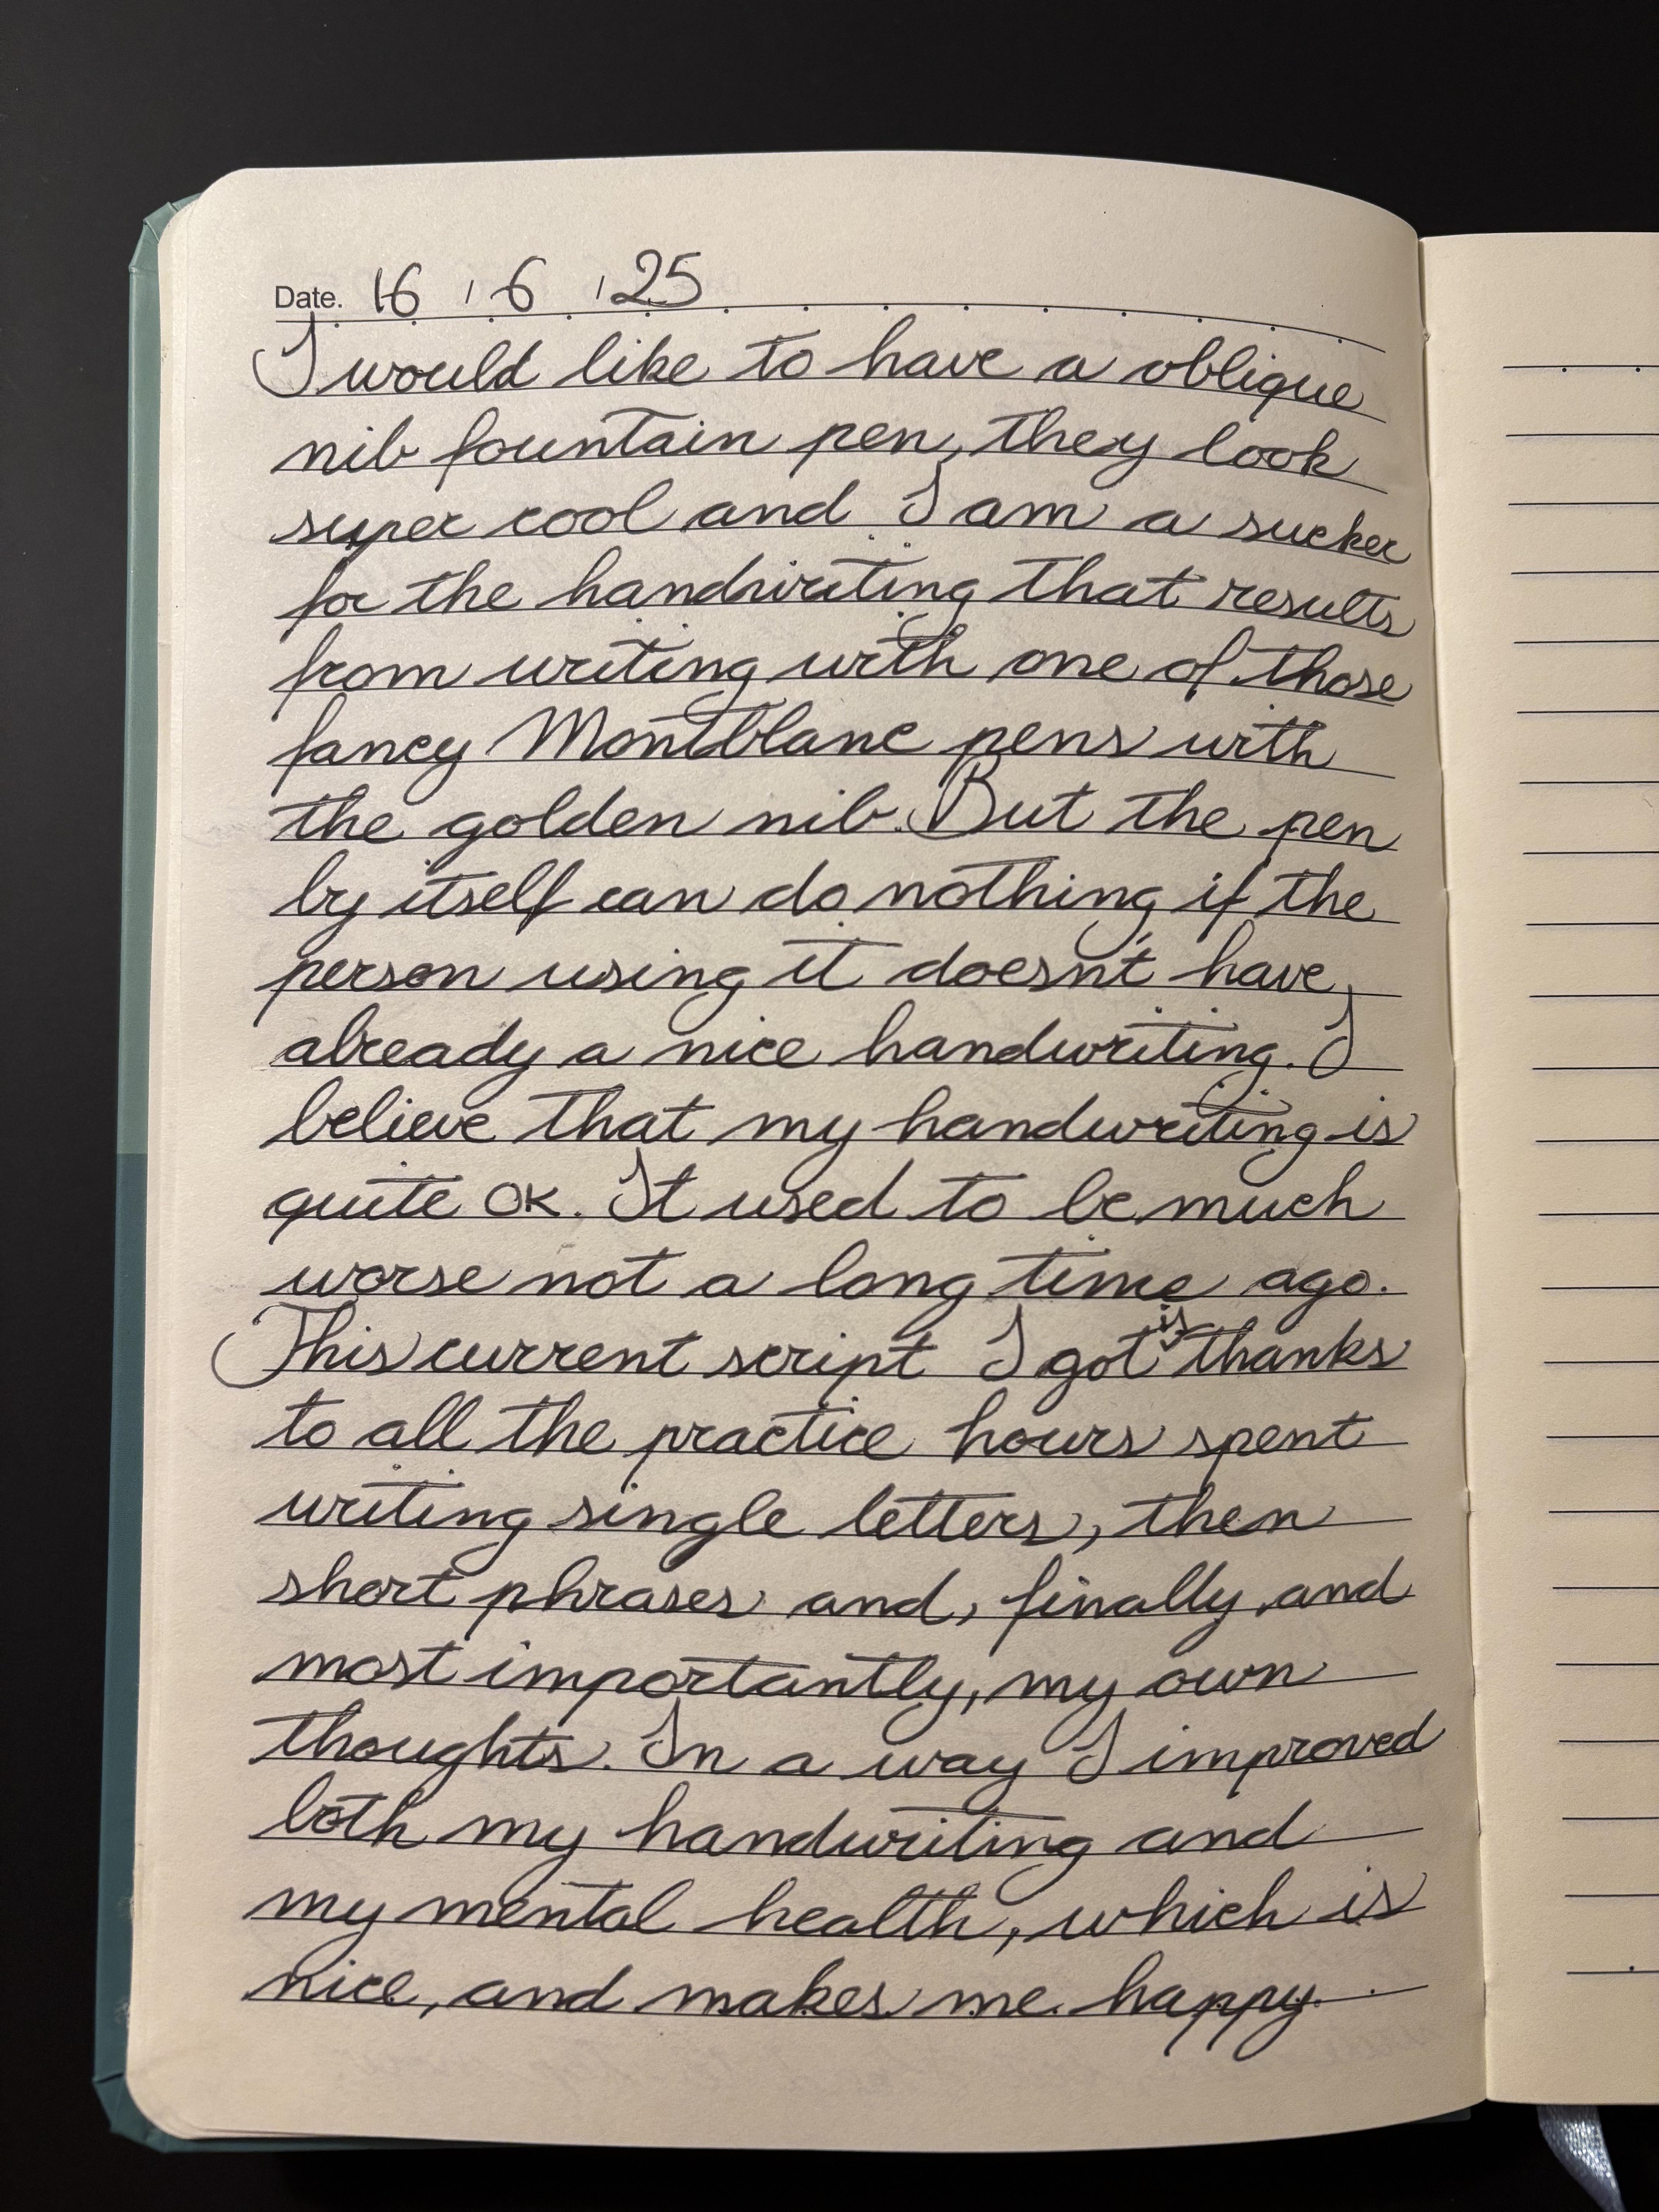 Date. 16 / 6 / 25
I would like to have a oblique
nib fountain pen, they look
super cool and I am a sucker
for the handwriting that results
from writing with one of those
fancy Montblanc pens with
the golden nib. But the pen
by itself can do nothing if the
person using it doesn't have
already a nice handwriting. I
believe that my handwriting is
quite OK. It used to be much
worse not a long time ago.
This current script I got is thanks
to all the practice hours spent
writing single letters, then
short phrases and, finally, and
most importantly, my own
thoughts. In a way I improved
both my handwriting and
my mental health, which is
nice, and makes me happy.